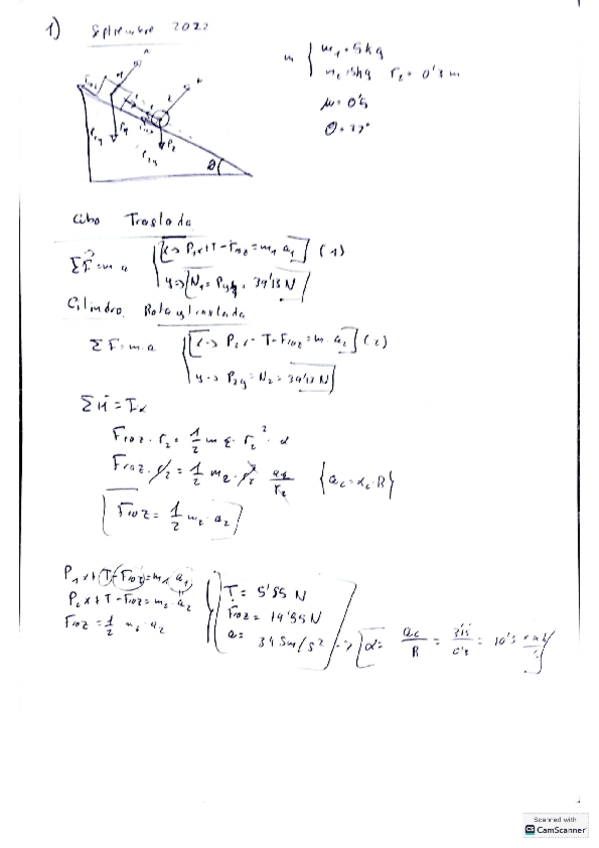 1) Septiembre 2022
m { m₁ = 5 kg
m₂ = 5 kg r₂ = 0'3 m
μ = 0'5
θ = 37°
P₂
θ
Cubo Traslada
ΣF = m·a { x -> P₁x + T - Froz = m₁ a₁ (1)
y -> N₁ = P₁y = 39'13 N
Cilindro. Rota y traslada
ΣF = m·a { x -> P₂x - T - Froz = m·a₂ (2)
y -> P₂y = N₂ = 39'13 N
ΣM = Iα
Froz · r₂ = 1/2 m₂ · r₂² · α
Froz · r₂ = 1/2 m₂ · r₂² a₂/r₂ { a_c = α_c · R }
Froz = 1/2 m₂ · a₂
P₁x + T - Froz = m₁ a₁
P₂x + T - Froz = m₂ a₂
Froz = 1/2 m₂ · a₂
T = 5'55 N
Froz =
a =
-> α = a_c/R =
Scanned with
CamScanner